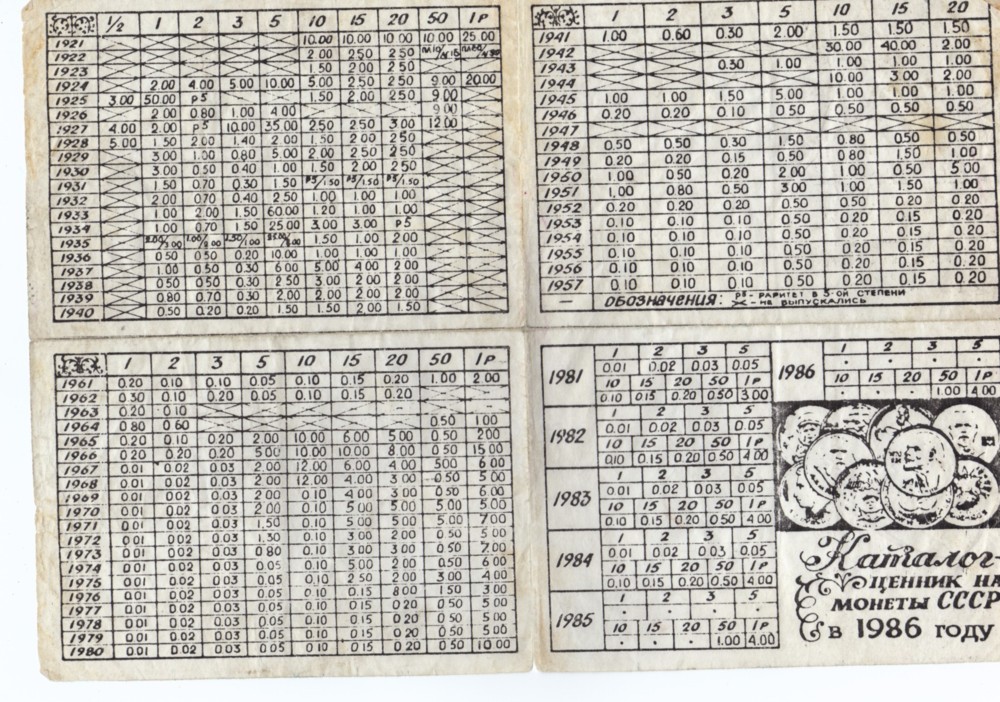 ½ 1 2 3 5 10 15 20 50 1р
1921 10.00 10.00 10.00 10.00 25.00
1922 2.00 2.50 2.50
1923 1.50 2.00 2.50
1924 2.00 4.00 5.00 10.00 5.00 2.50 2.50 9.00 20.00
1925 3.00 50.00 р5 - - 1.50 2.00 2.50 9.00
1926 2.00 0.80 1.00 4.00 9.00
1927 4.00 2.00 р5 10.00 35.00 2.50 2.50 3.00 12.00
1928 5.00 1.50 2.00 1.40 2.00 1.50 2.00 2.50
1929 3.00 1.00 0.80 5.00 2.00 2.50 2.50
1930 3.00 0.50 0.40 1.00 1.50 2.00 2.50
1931 1.50 0.70 0.30 1.50 р5/1.50 р5/1.50 р5/1.50
1932 2.00 0.70 0.40 2.50 1.00 1.00 1.00
1933 1.00 2.00 1.50 60.00 1.20 1.00 1.00
1934 1.00 0.70 1.50 25.00 3.00 3.00 р5
1935 1.50 1.00 2.00
1936 0.50 0.50 0.20 10.00 1.00 1.00 1.00
1937 1.00 0.50 0.30 6.00 5.00 4.00 2.00
1938 0.50 0.50 0.30 2.50 2.00 2.00 2.00
1939 0.80 0.70 0.30 2.00 2.00 2.00 2.00
1940 0.50 0.20 0.20 1.50 1.50 2.00 1.50
1 2 3 5 10 15 20
1941 1.00 0.60 0.30 2.00 1.50 1.50 1.50
1942 30.00 40.00 2.00
1943 0.30 1.00 1.00 1.00 1.00
1944 10.00 3.00 2.00
1945 1.00 1.00 1.50 5.00 1.00 1.00 1.00
1946 0.20 0.20 0.10 0.50 0.50 0.50 0.50
1947
1948 0.50 0.50 0.30 1.50 0.80 0.50 0.50
1949 0.20 0.20 0.15 0.50 0.80 1.50 1.00
1950 1.00 0.50 0.20 2.00 1.00 0.50 5.00
1951 1.00 0.80 0.50 3.00 1.00 1.50 1.00
1952 0.20 0.20 0.20 0.50 0.50 0.20 0.20
1953 0.10 0.10 0.10 0.50 0.20 0.15 0.20
1954 0.10 0.10 0.10 0.50 0.20 0.15 0.20
1955 0.10 0.10 0.10 0.50 0.20 0.15 0.20
1956 0.10 0.10 0.10 0.50 0.20 0.15 0.20
1957 0.10 0.10 0.10 0.50 0.20 0.15 0.20
— ОБОЗНАЧЕНИЯ: р5 - РАРИТЕТ В 5-ОЙ СТЕПЕНИ
- НЕ ВЫПУСКАЛИСЬ
1 2 3 5 10 15 20 50 1р
1961 0.20 0.10 0.10 0.05 0.10 0.15 0.20 1.00 2.00
1962 0.30 0.10 0.20 0.05 0.10 0.15 0.20 - -
1963 0.20 0.10 - -
1964 0.80 0.60 0.50 1.00
1965 0.20 0.10 0.20 2.00 10.00 6.00 5.00 0.50 2.00
1966 0.20 0.20 0.20 5.00 10.00 10.00 8.00 0.50 15.00
1967 0.01 0.02 0.03 2.00 12.00 6.00 4.00 5.00 6.00
1968 0.01 0.02 0.03 2.00 12.00 4.00 3.00 0.50 5.00
1969 0.01 0.02 0.03 2.00 0.10 4.00 3.00 0.50 6.00
1970 0.01 0.02 0.03 2.00 0.10 5.00 5.00 5.00 5.00
1971 0.01 0.02 0.03 1.50 0.10 5.00 5.00 5.00 7.00
1972 0.01 0.02 0.03 1.30 0.10 3.00 2.00 0.50 5.00
1973 0.01 0.02 0.03 0.80 0.10 3.00 3.00 0.50 7.00
1974 0.01 0.02 0.03 0.05 0.10 5.00 2.00 0.50 6.00
1975 0.01 0.02 0.03 0.05 0.10 2.50 2.00 3.00 4.00
1976 0.01 0.02 0.03 0.05 0.10 0.15 8.00 1.50 3.00
1977 0.01 0.02 0.03 0.05 0.10 0.15 0.20 0.50 5.00
1978 0.01 0.02 0.03 0.05 0.10 0.15 0.20 0.50 5.00
1979 0.01 0.02 0.03 0.05 0.10 0.15 0.20 0.50 5.00
1980 0.01 0.02 0.03 0.05 0.10 0.15 0.20 0.50 10.00
1981
1 2 3 5
0.01 0.02 0.03 0.05
10 15 20 50 1р
0.10 0.15 0.20 0.50 3.00
1982
1 2 3 5
0.01 0.02 0.03 0.05
10 15 20 50 1р
0.10 0.15 0.20 0.50 4.00
1983
1 2 3 5
0.01 0.02 0.03 0.05
10 15 20 50 1р
0.10 0.15 0.20 0.50 4.00
1984
1 2 3 5
0.01 0.02 0.03 0.05
10 15 20 50 1р
0.10 0.15 0.20 0.50 4.00
1985
1 2 3 5
. . . .
10 15 20 50 1р
. . . 1.00 4.00
1986
1 2 3 5
. . . .
10 15 20 50 1р
. . . 1.00 4.00
Каталог-
ЦЕННИК НА
МОНЕТЫ СССР
в 1986 году